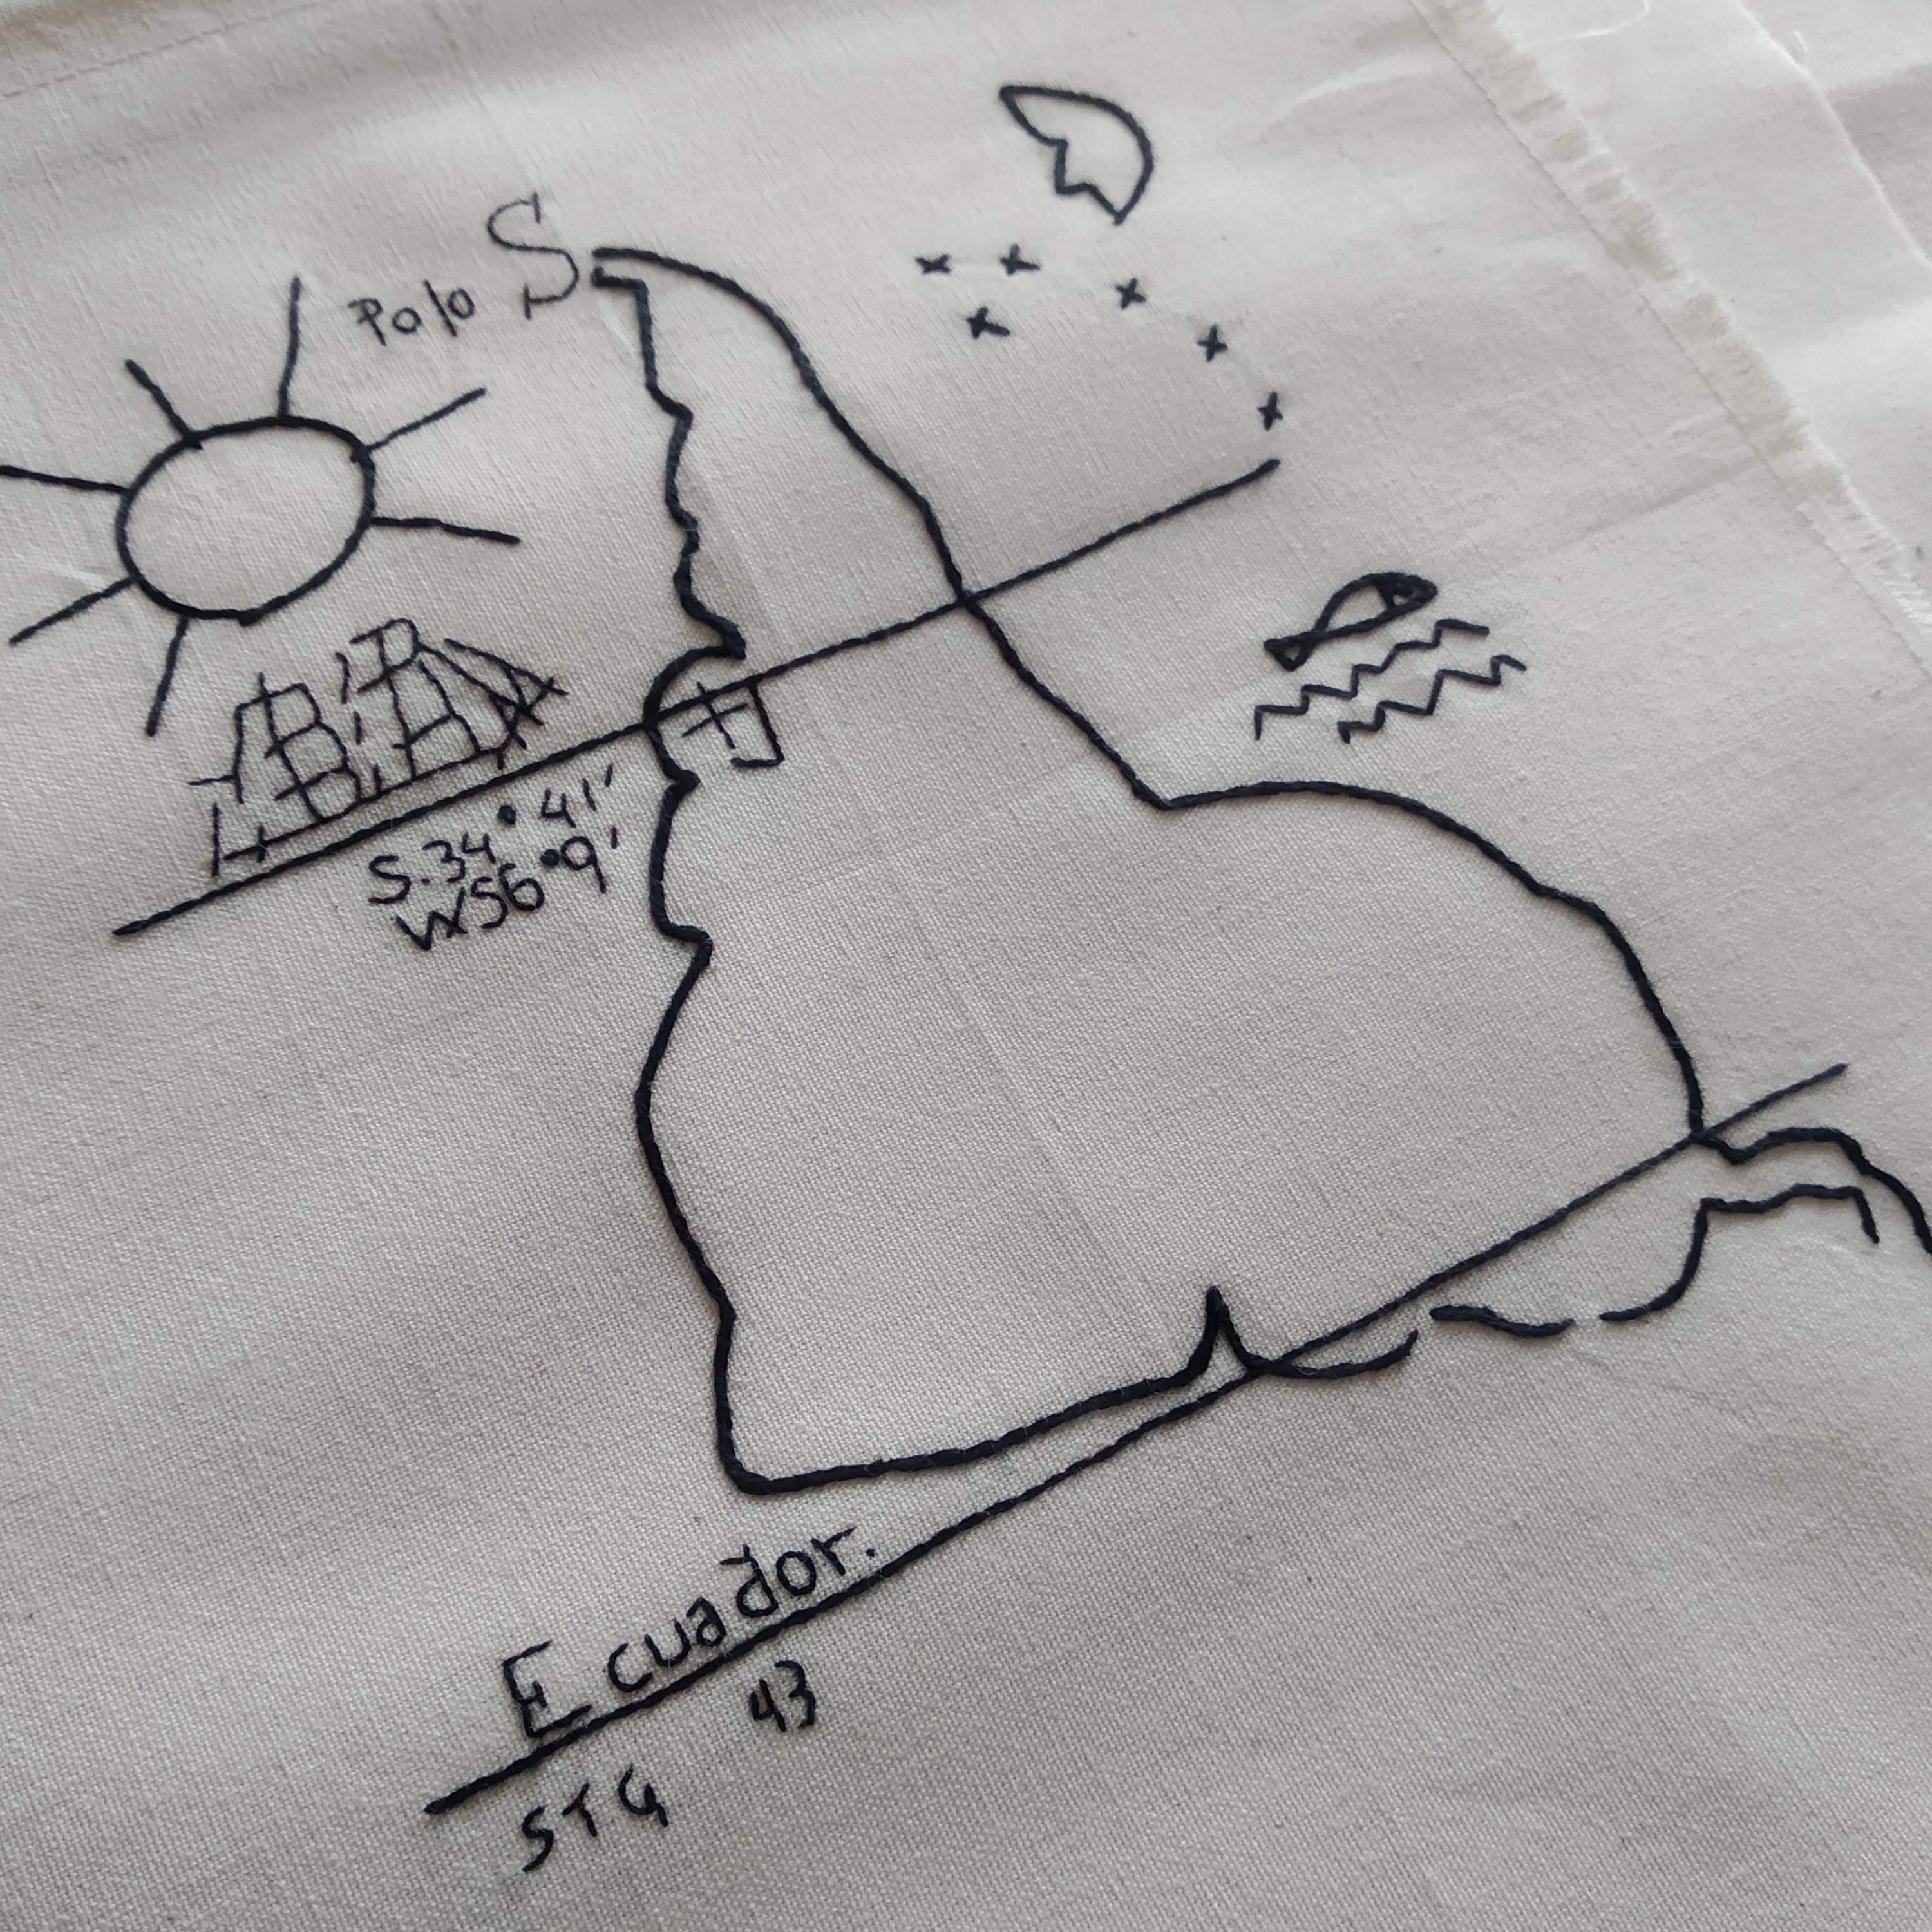 Polo S.
S. 34° 41'
W 56° 9'
Ecuador.
43
STG